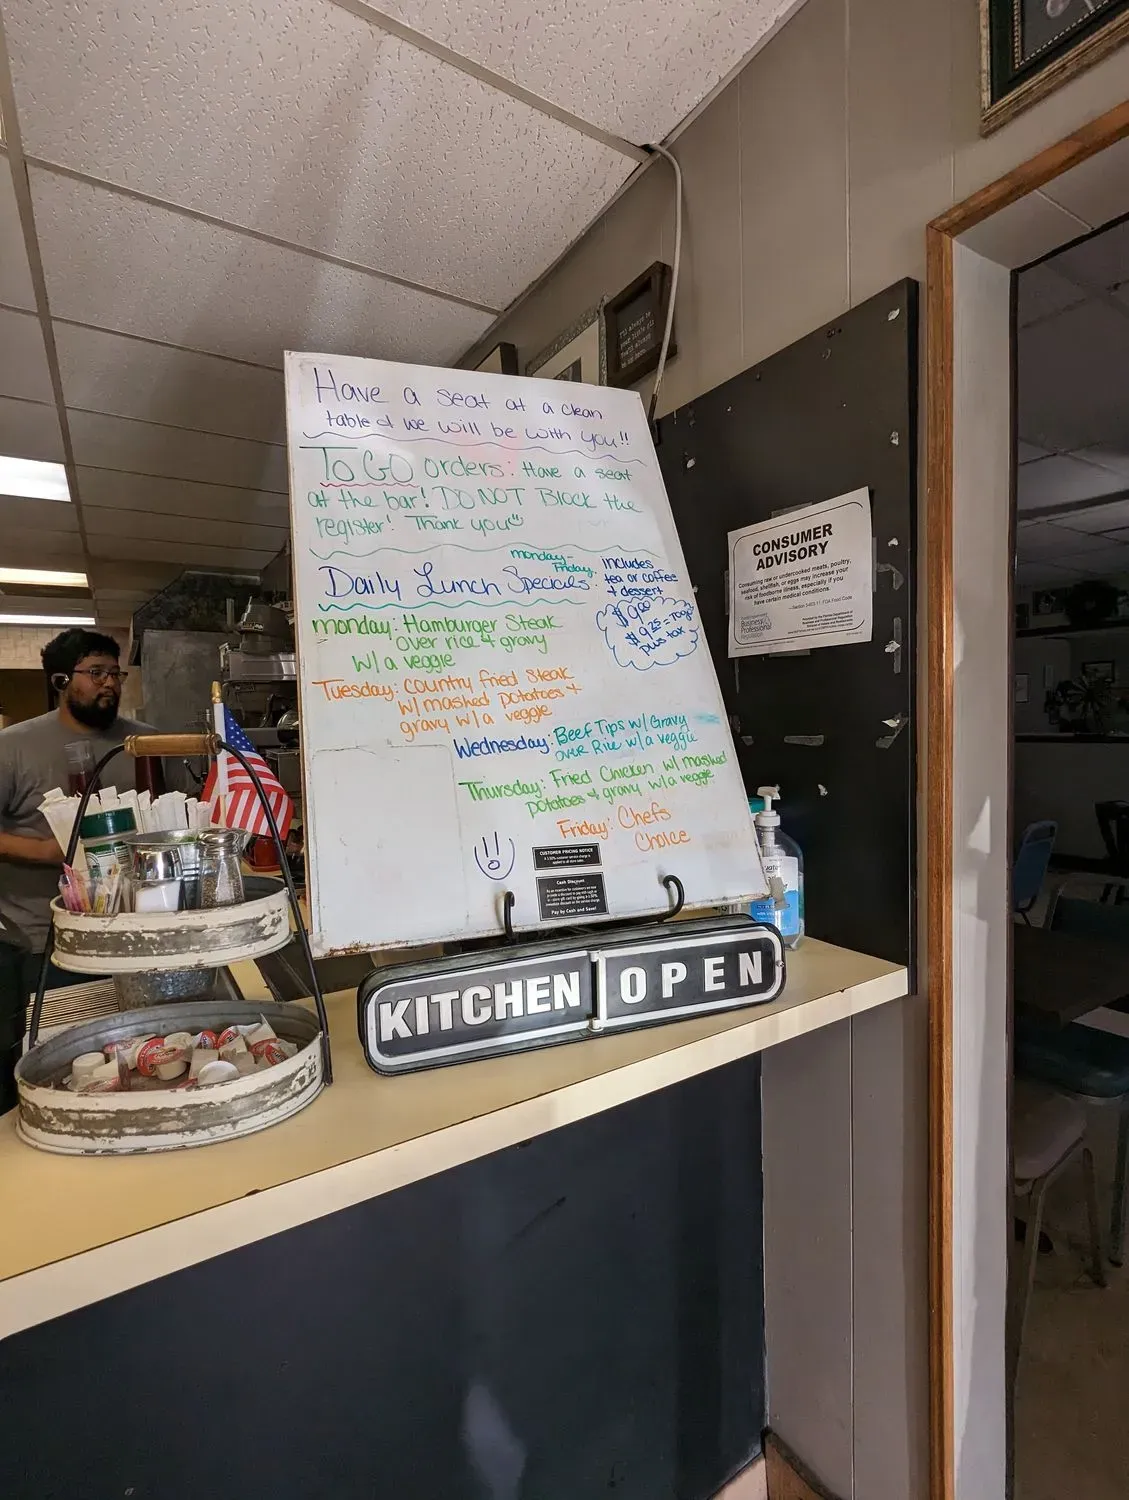 Have a seat at a clean
table & we will be with you!!
TO GO orders: Have a seat
at the bar! DO NOT Block the
register! Thank you
monday-
Friday
Daily Lunch Specials
includes
tea or coffee
+ dessert
$9.00
$9.25 = Togo
plus tax
monday: Hamburger Steak
over rice & gravy
w/ a veggie
Tuesday: Country Fried Steak
w/ mashed potatoes +
gravy w/ a veggie
Wednesday: Beef Tips w/ Gravy
over Rice w/ a veggie
Thursday: Fried Chicken w/ mashed
potatoes & gravy w/ a veggie
Friday: Chefs
Choice
CUSTOMER PRICING NOTICE
Cash Discount
Pay by Cash and Save!
KITCHEN OPEN
CONSUMER
ADVISORY
Consuming raw or undercooked meats, poultry,
seafood, shellfish, or eggs may increase your
risk of foodborne illness, especially if you
have certain medical conditions.
Business &
Professional
Regulation